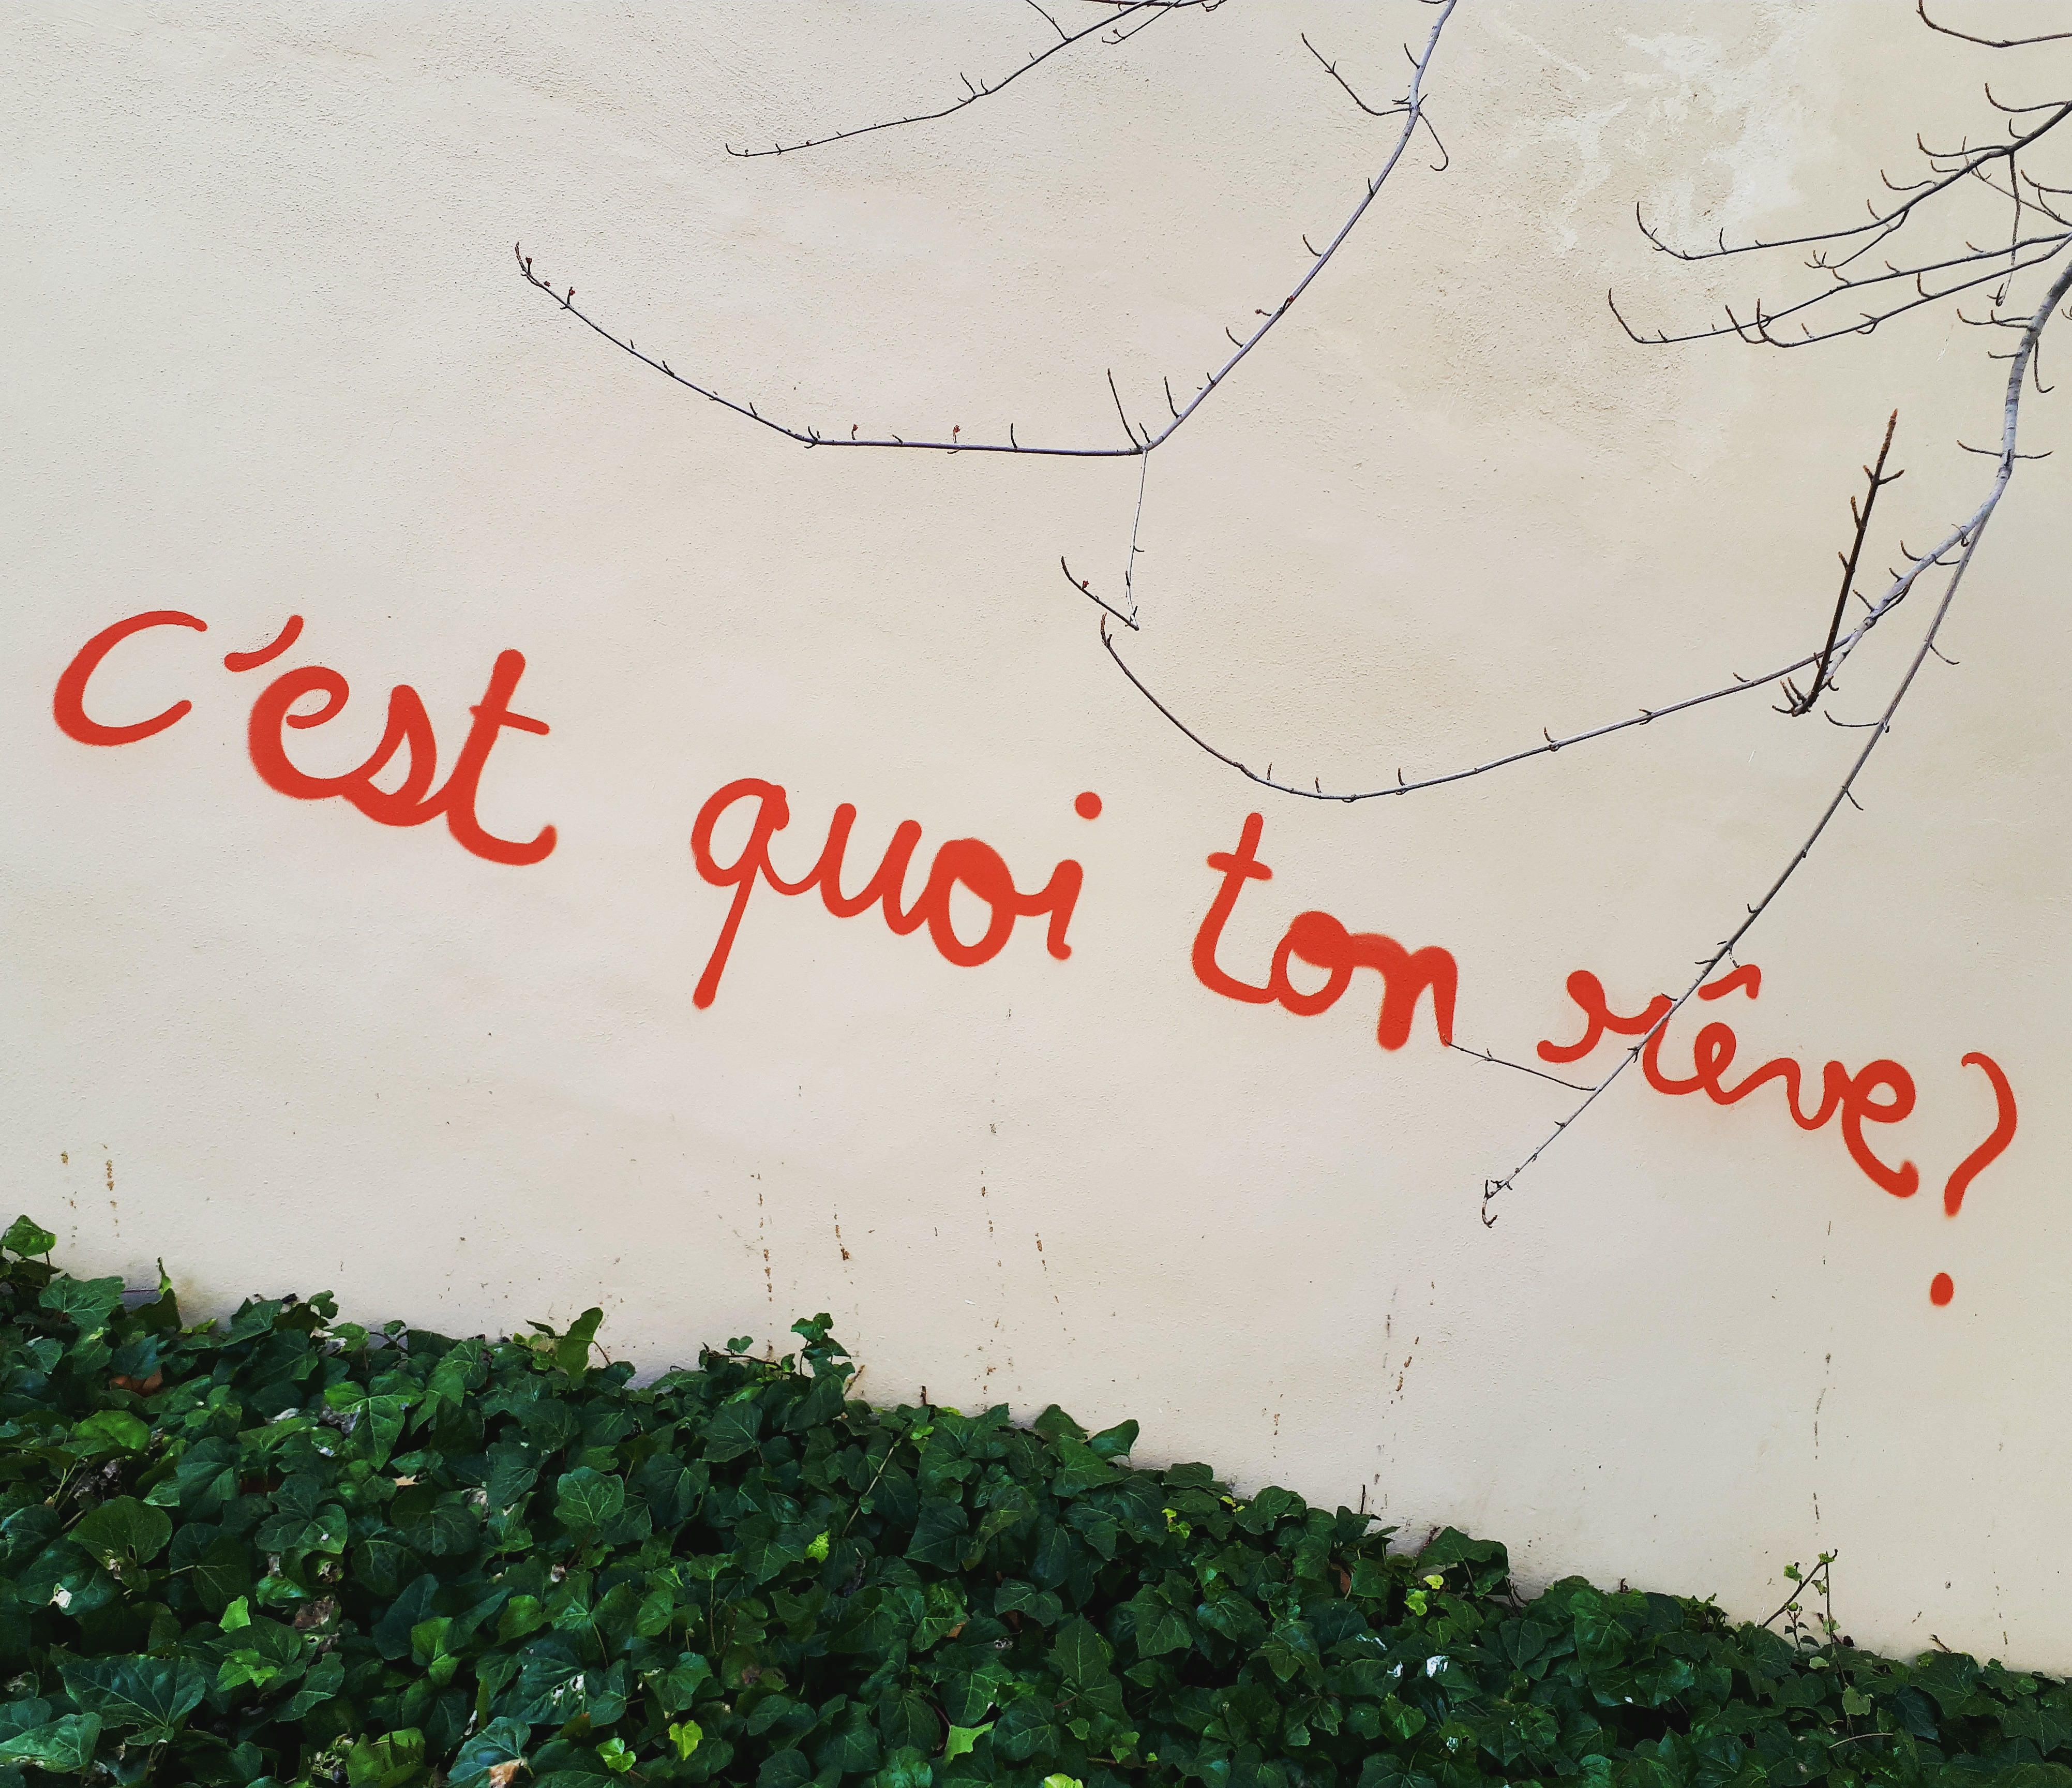 c'est quoi ton rêve?